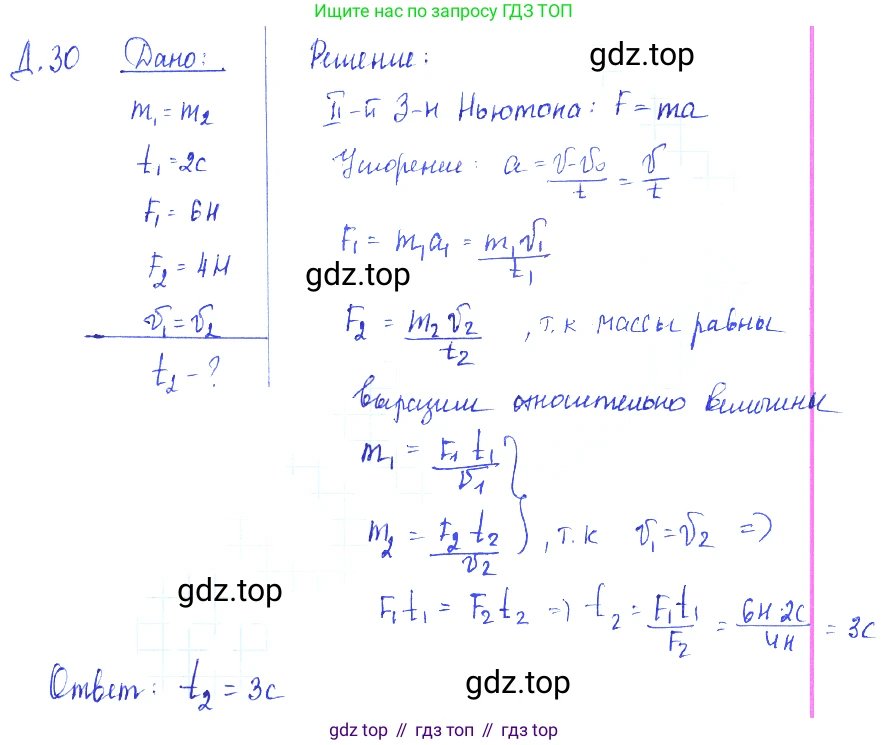 Ищите нас по запросу ГДЗ ТОП
Д.30 Дано: Решение: gdz.top
m₁ = m₂ II-й З-н Ньютона: F = ma
t₁ = 2с Ускорение: a = (v-v₀)/t = v/t
F₁ = 6Н
F₁ = m₁a₁ = m₁v₁/t₁
F₂ = 4Н gdz.top
v₁ = v₂ F₂ = m₂v₂/t₂, т.к массы равны
t₂ - ?
выразим относительно величины
m₁ = F₁ t₁/v₁
m₂ = F₂ t₂/v₂, т.к v₁ = v₂ =>
gdz.top
F₁t₁ = F₂t₂ => t₂ = F₁t₁/F₂ = 6Н·2с/4Н = 3с
Ответ: t₂ = 3с gdz.top
gdz top // гдз топ // gdz top